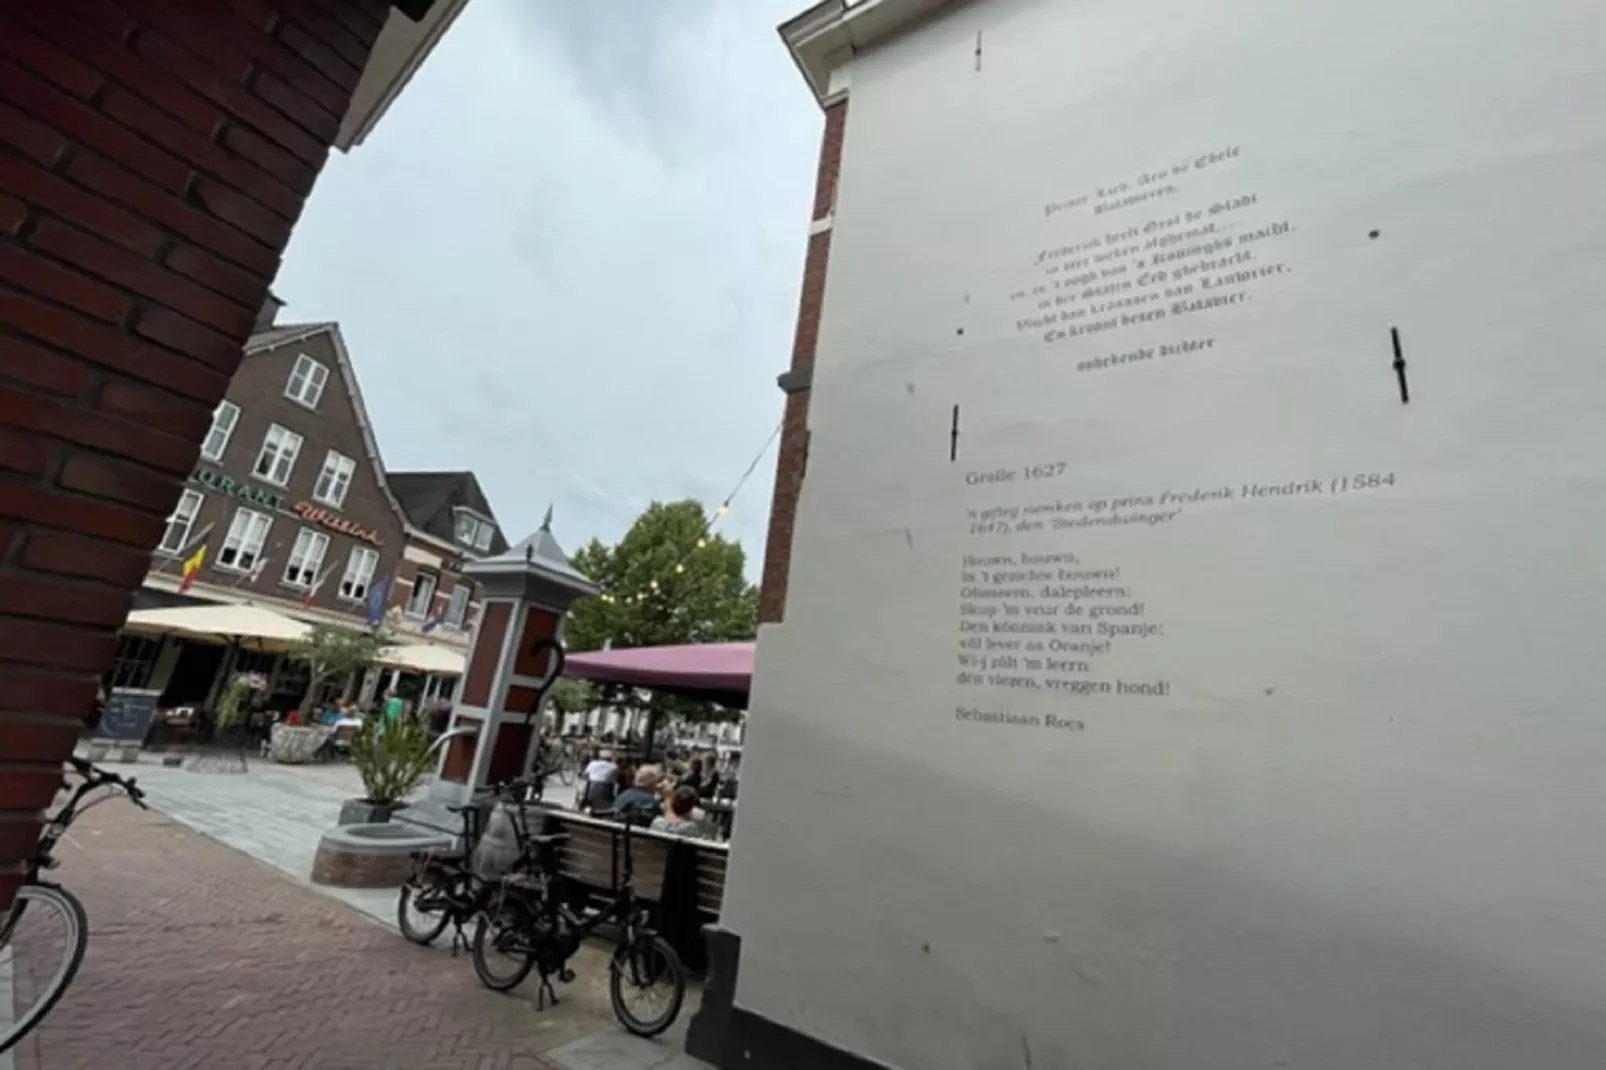 URANT
Wissink
Prince Lied. Aen de Edele
Batavieren.
Frederick heeft Grol de Stadt
in vier weken afghemat,
en, in 't oogh van 's Koninghs macht,
in der Staten Eed ghebracht.
Vlecht dan kranssen van Lauwrier,
En kroont desen Batavier.
onbekende dichter
Grolle 1627
'n gifteg riemken op prins Frederik Hendrik (1584
1647), den 'Stedendwinger'
Houwn, houwn,
In 't gezichte houwn!
Olusseern, dalepleern:
Skup 'm veur de grond!
Den könnink van Spanje:
völ lever as Oranje!
Wi-j zölt 'm leern:
den viezen, vreggen hond!
Sebastiaan Roes